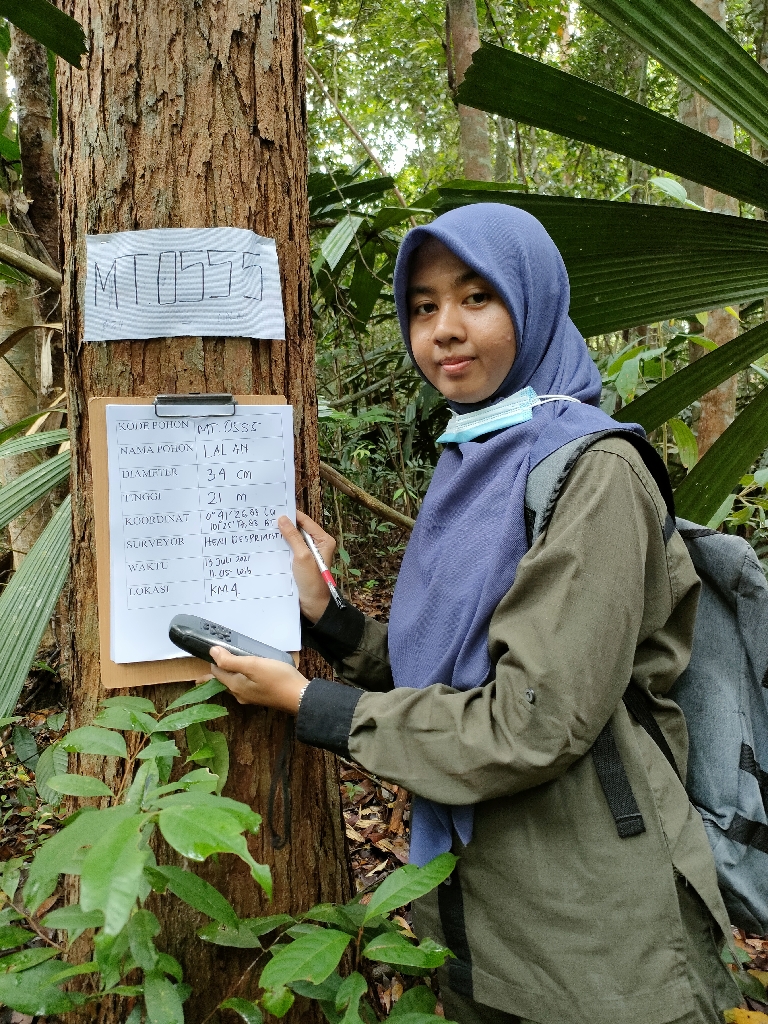 MT.0555
KODE POHON MT. 0555
NAMA POHON LALAN
DIAMETER 34 cm
TINGGI 21 m
KOORDINAT 0°41'26,88 LU
101°25'
SURVEYOR HENI
WAKTU 13 JULI 2021
11.45 WIB
LOKASI KM 4